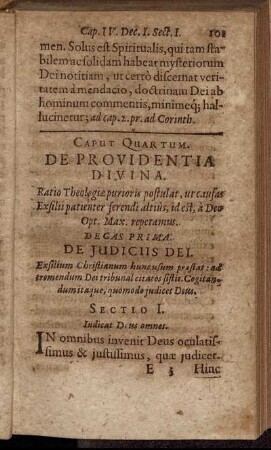 Cap. IV. Dec. I. Sect. I. 101
men. Solus est Spiritualis, qui tam sta-
bilem ac solidam habeat mysteriorum
Dei notitiam, ut certò discernat veri-
tatem à mendacio, doctrinam Dei ab
hominum commentis, minimeq; hal-
lucinetur; ad cap. 2. pr. ad Corinth.
CAPUT QUARTUM.
DE PROVIDENTIA
DIVINA.
Ratio Theologiæ purioris postulat, ut causas
Exsilii patienter ferendi altiùs, id est, à Deo
Opt. Max. repetamus.
DECAS PRIMA.
DE JUDICIIS DEI.
Exsilium Christianum hunc usum præstat: ad
tremendum Dei tribunal citatos sistit. Cogitan-
dum itaque, quomodo judicet Deus.
SECTIO I.
Iudicat Deus omnes.
IN omnibus invenit Deus oculatis-
simus & justissimus, quæ judicet.
E 3 Hinc